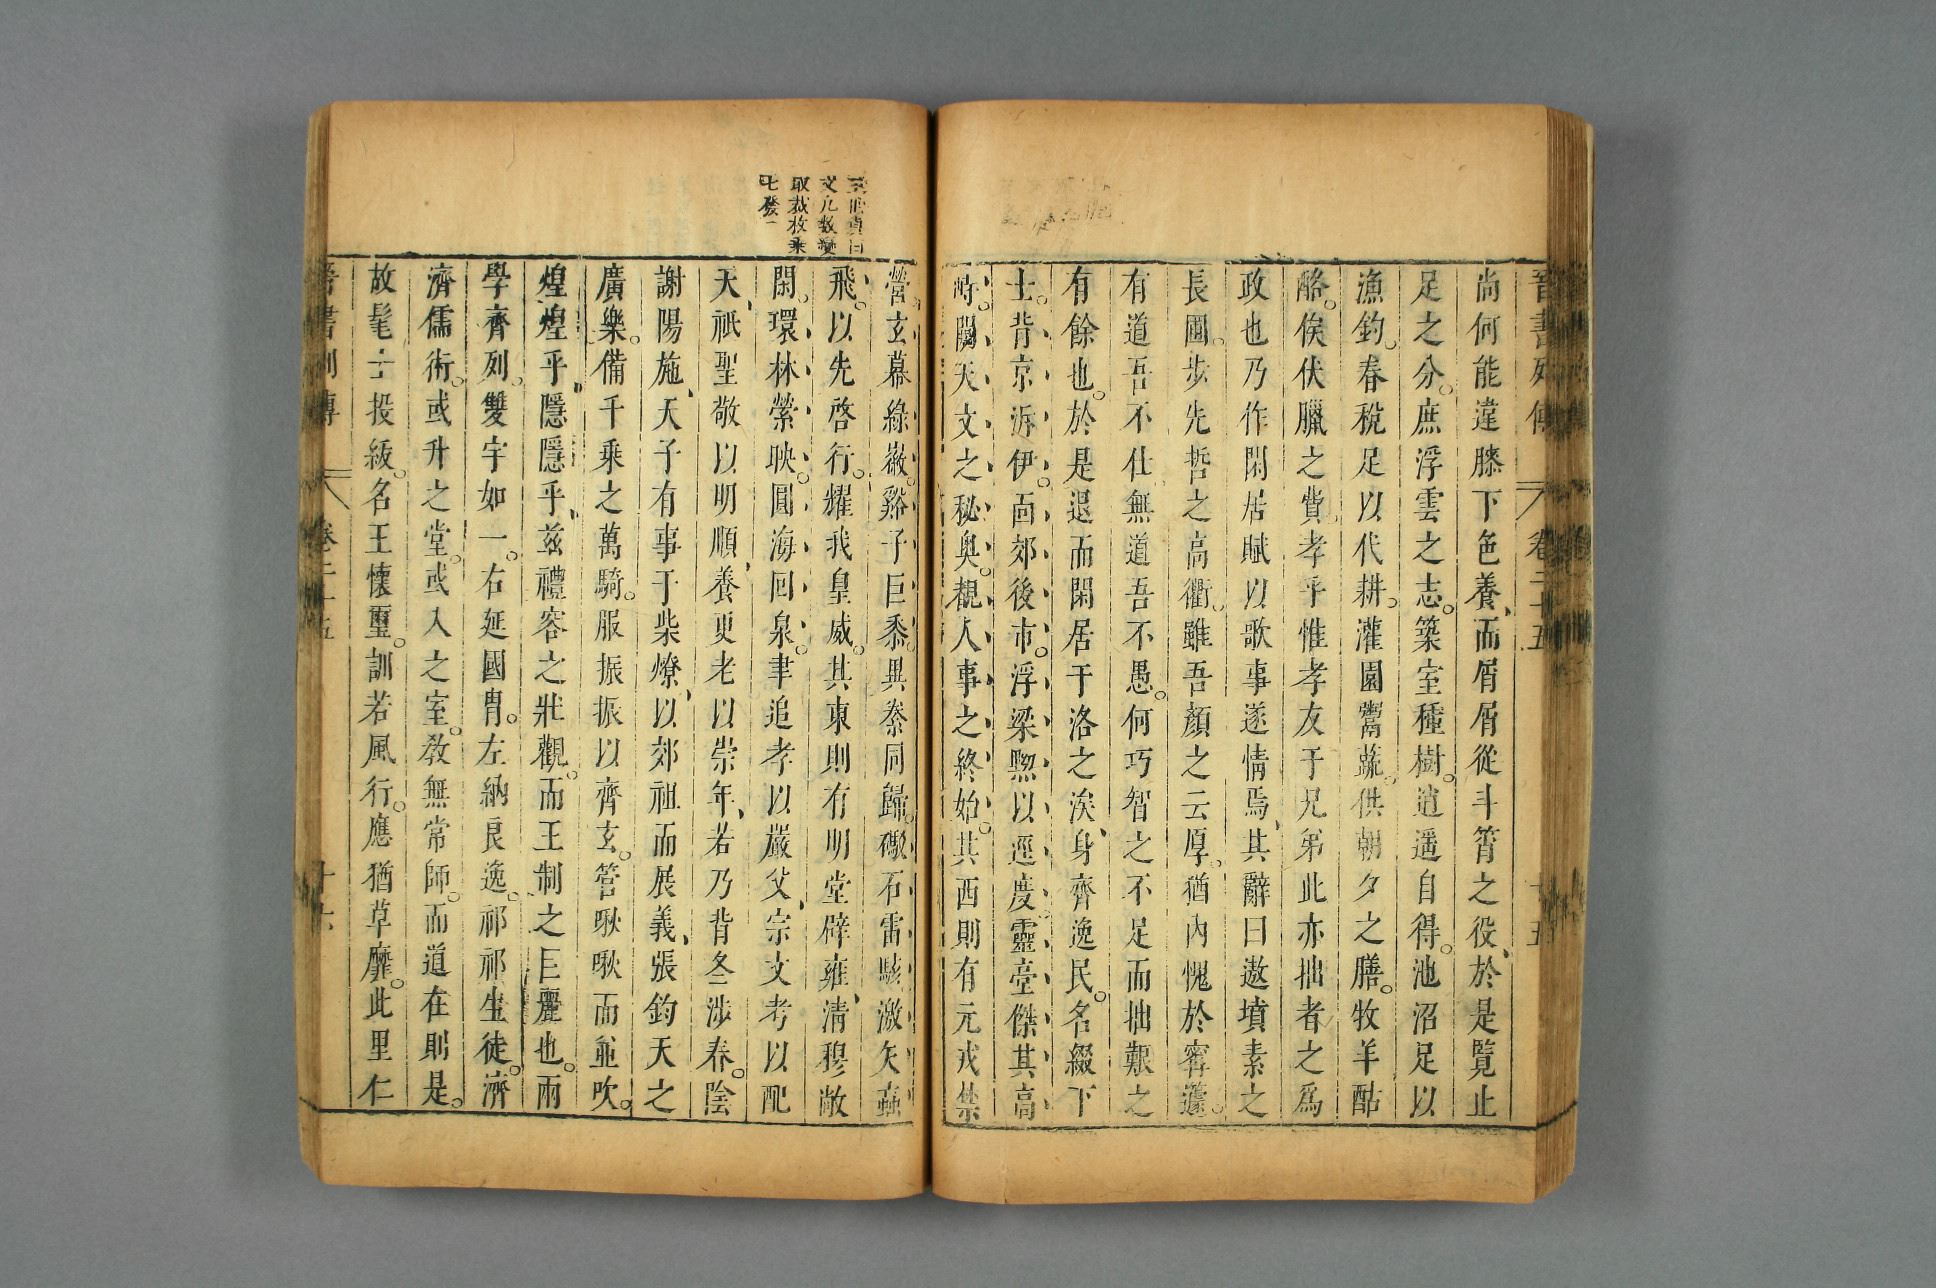 晉書列傳 卷二十五 十五
尚何能違膝下色養而屑屑從斗筲之役於是覽止
足之分庶浮雲之志築室種樹逍遥自得池沼足以
漁釣春稅足以代耕灌園鬻蔬供朝夕之膳牧羊酤
酪俟伏臘之費孝乎惟孝友于兄弟此亦拙者之爲
政也乃作閑居賦以歌事遂情焉其辭曰遨墳素之
長圃步先哲之高衢雖吾顏之云厚猶內愧於甯蘧
有道吾不仕無道吾不愚何巧智之不足而拙艱之
有餘也於是退而閑居于洛之涘身齊逸民名綴下
士背京泝伊面郊後市浮梁黝以逕度靈臺傑其高
峙闚天文之秘奥覩人事之終始其西則有元戎禁
營玄幕綠徽谿子巨黍異絭同歸礮石雷駭激矢蝱
飛以先啓行耀我皇威其東則有明堂辟雍清穆敞
閑環林縈映圓海回泉聿追孝以嚴父宗文考以配
天祇聖敬以明順養更老以崇年若乃背冬涉春陰
謝陽施天子有事于柴燎以郊祖而展義張鈞天之
廣樂備千乘之萬騎服振振以齊玄管啾啾而並吹
煌煌乎隱隱乎兹禮容之壯觀而王制之巨麗也兩
學齊列雙宇如一右延國冑左納良逸祁祁生徒濟
濟儒術或升之堂或入之室教無常師而道在則是
故髦士投紱名王懷璽訓若風行應猶草靡此里仁
晉書列傳 卷二十五 十六
文凡數變
取裁枚乘
七發